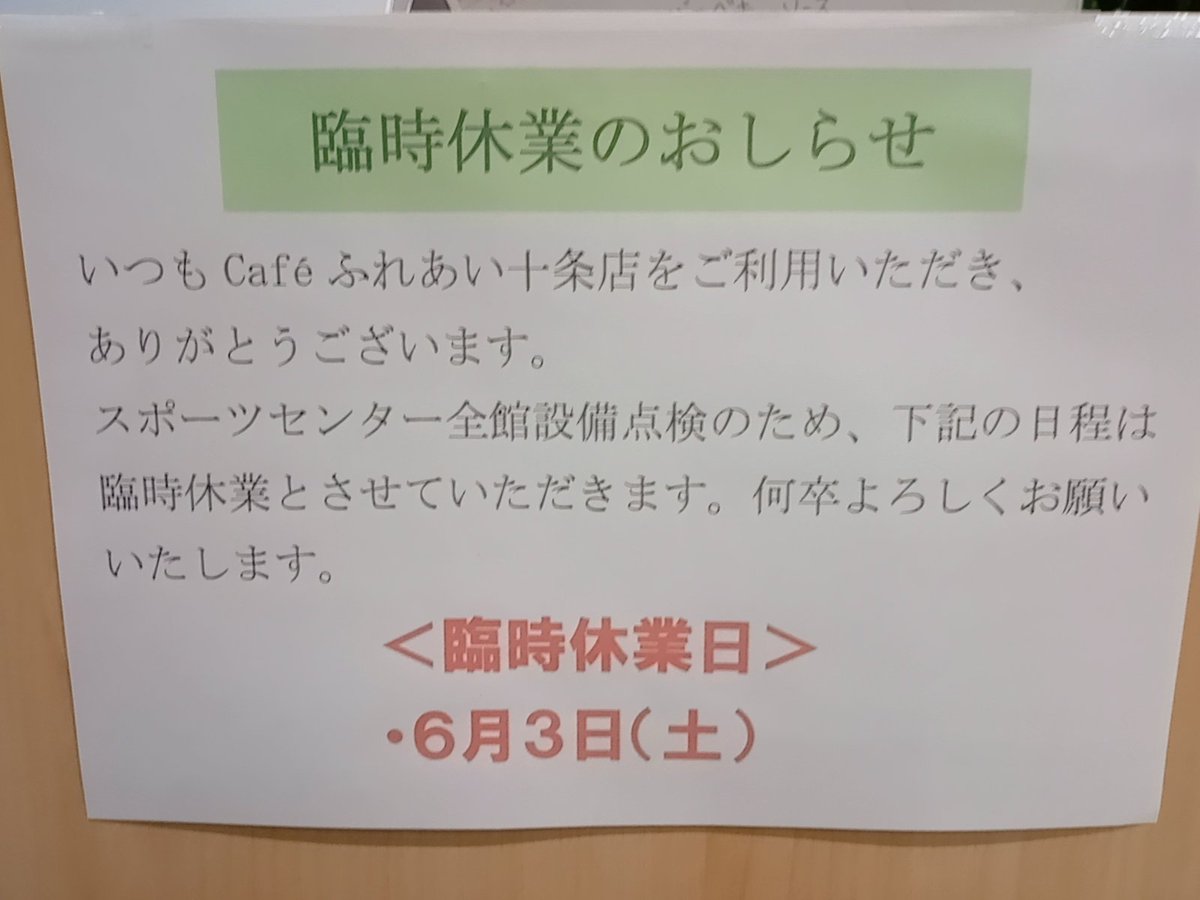 臨時休業のおしらせ
いつも Café ふれあい十条店をご利用いただき、
ありがとうございます。
スポーツセンター全館設備点検のため、下記の日程は
臨時休業とさせていただきます。何卒よろしくお願い
いたします。
＜臨時休業日＞
・６月３日（土）